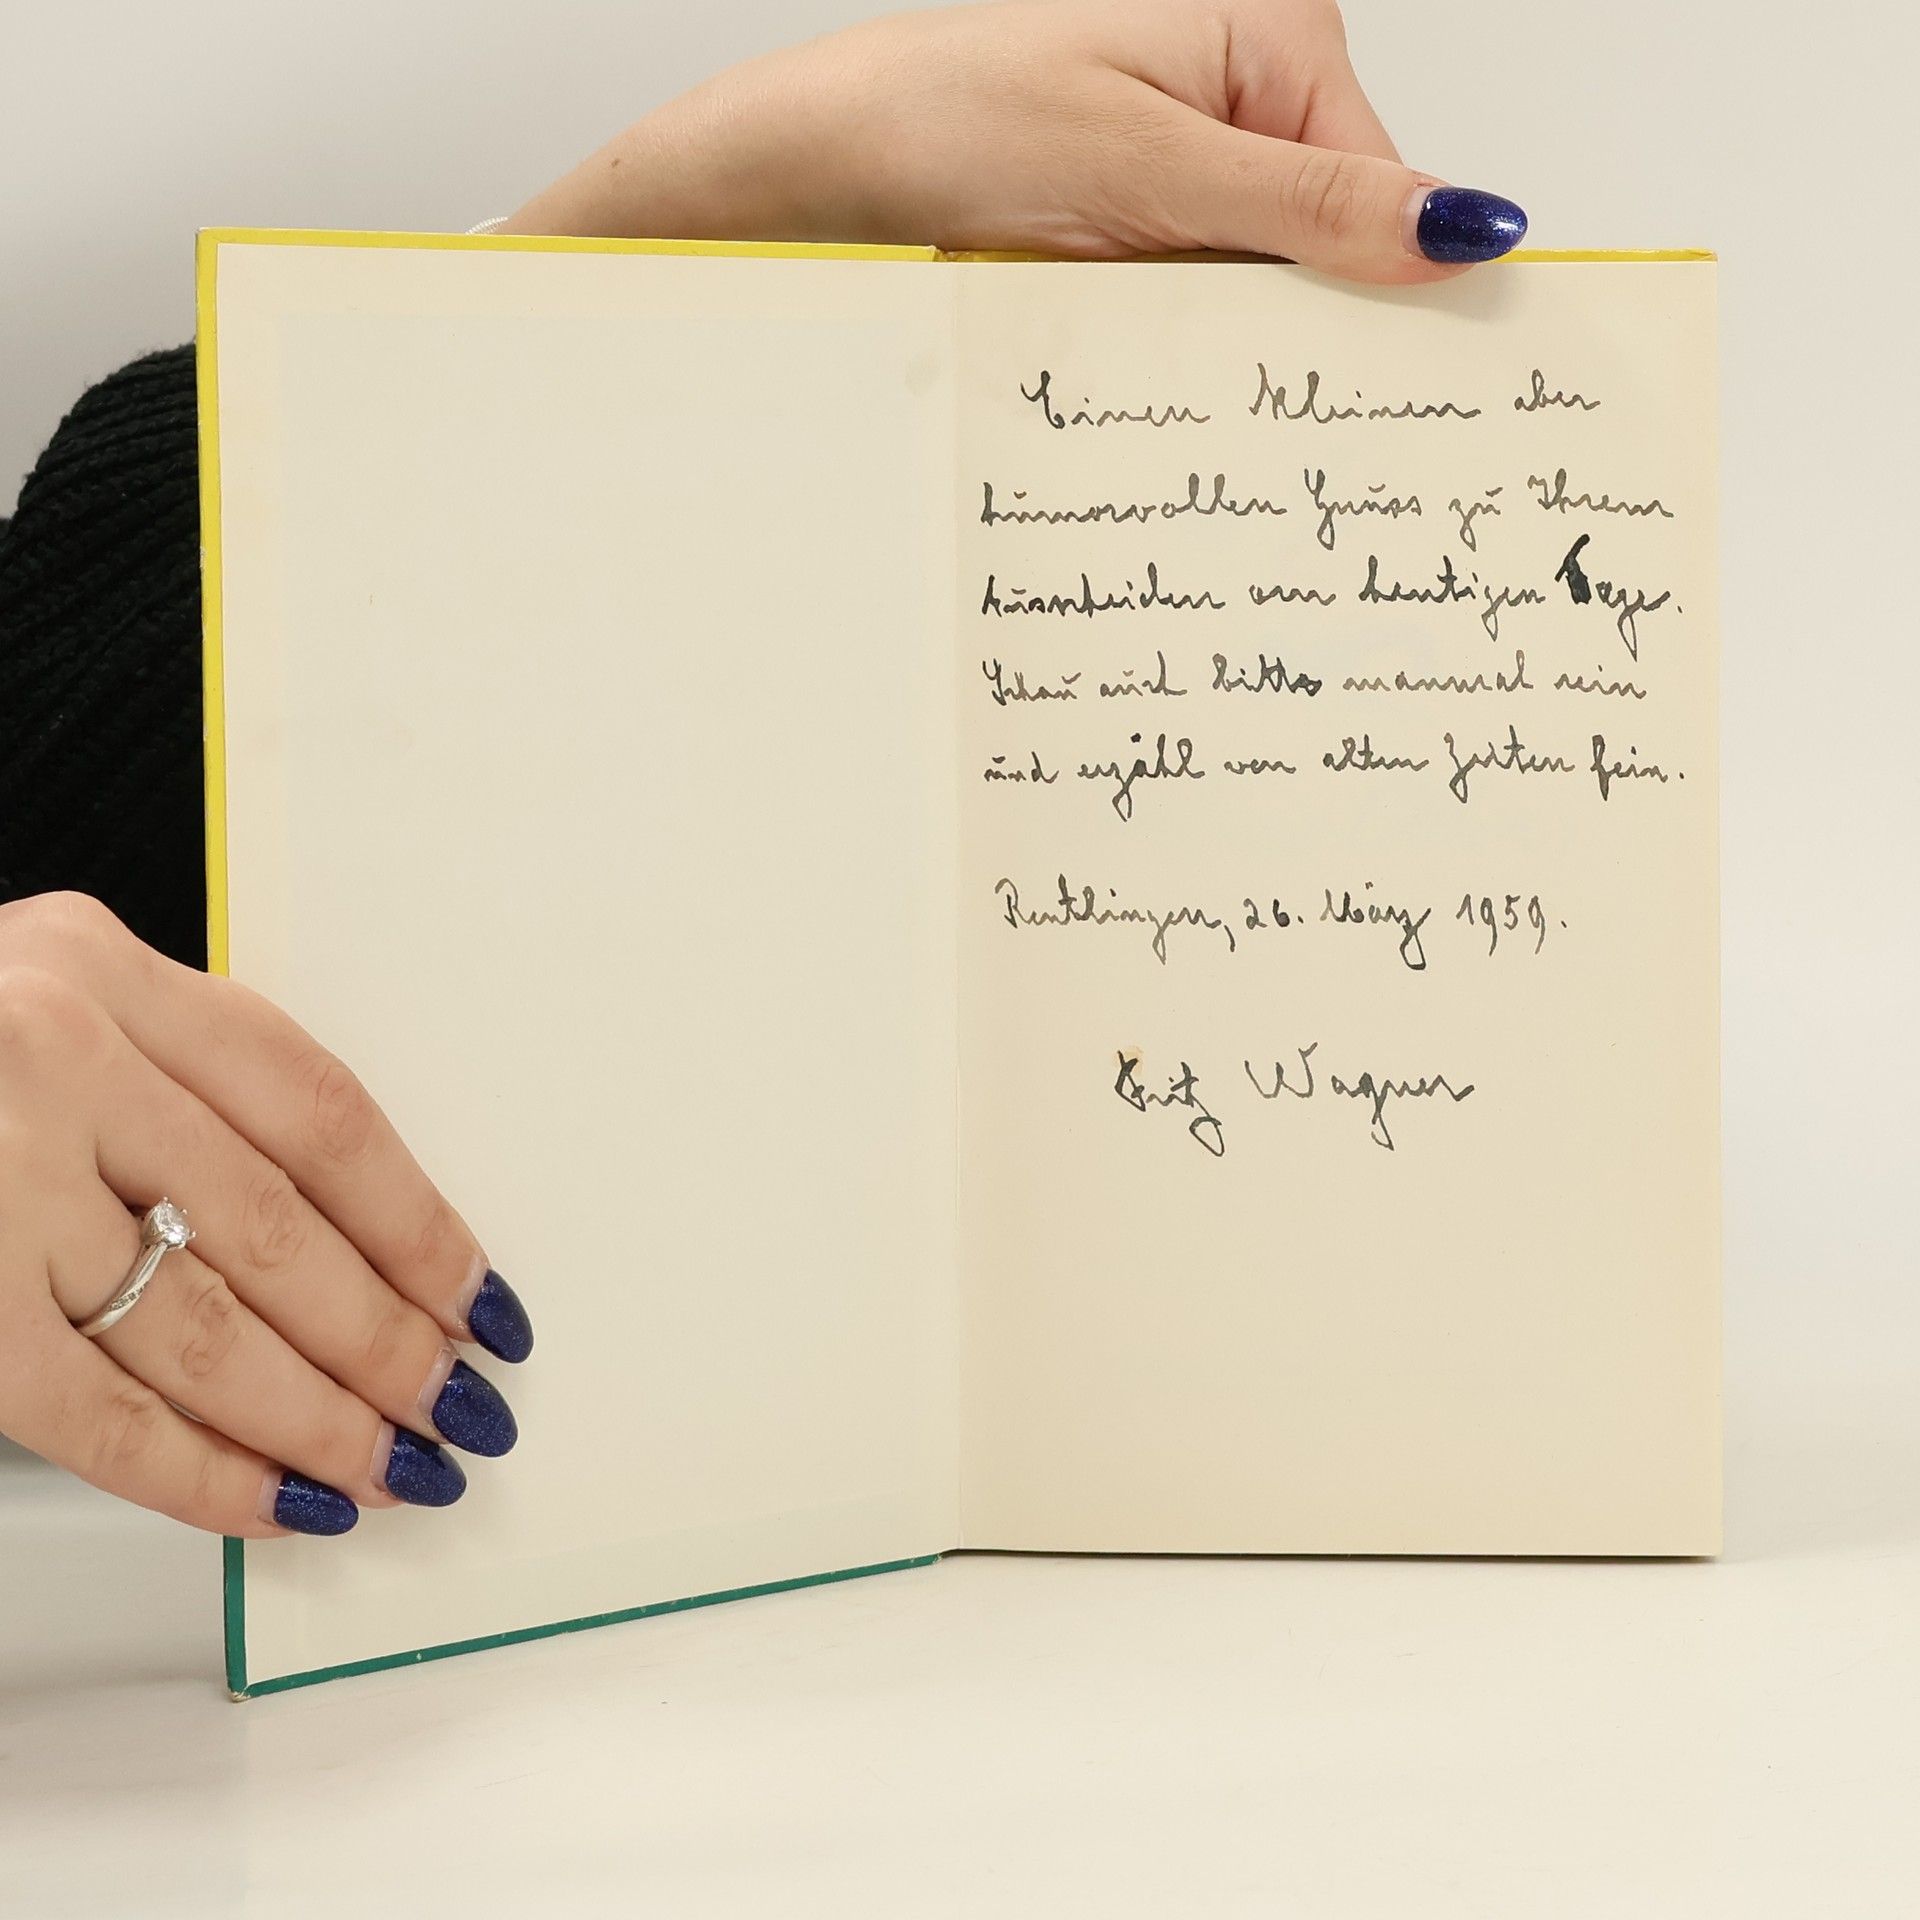 Einen Kleinen aber
humorvollen Gruss zu Ihrem
Ausscheiden am heutigen Tage.
Schau auch bitte manmal rein
und erzähl von alten Zeiten fein.
Reutlingen, 26. März 1959.
Fritz Wagner